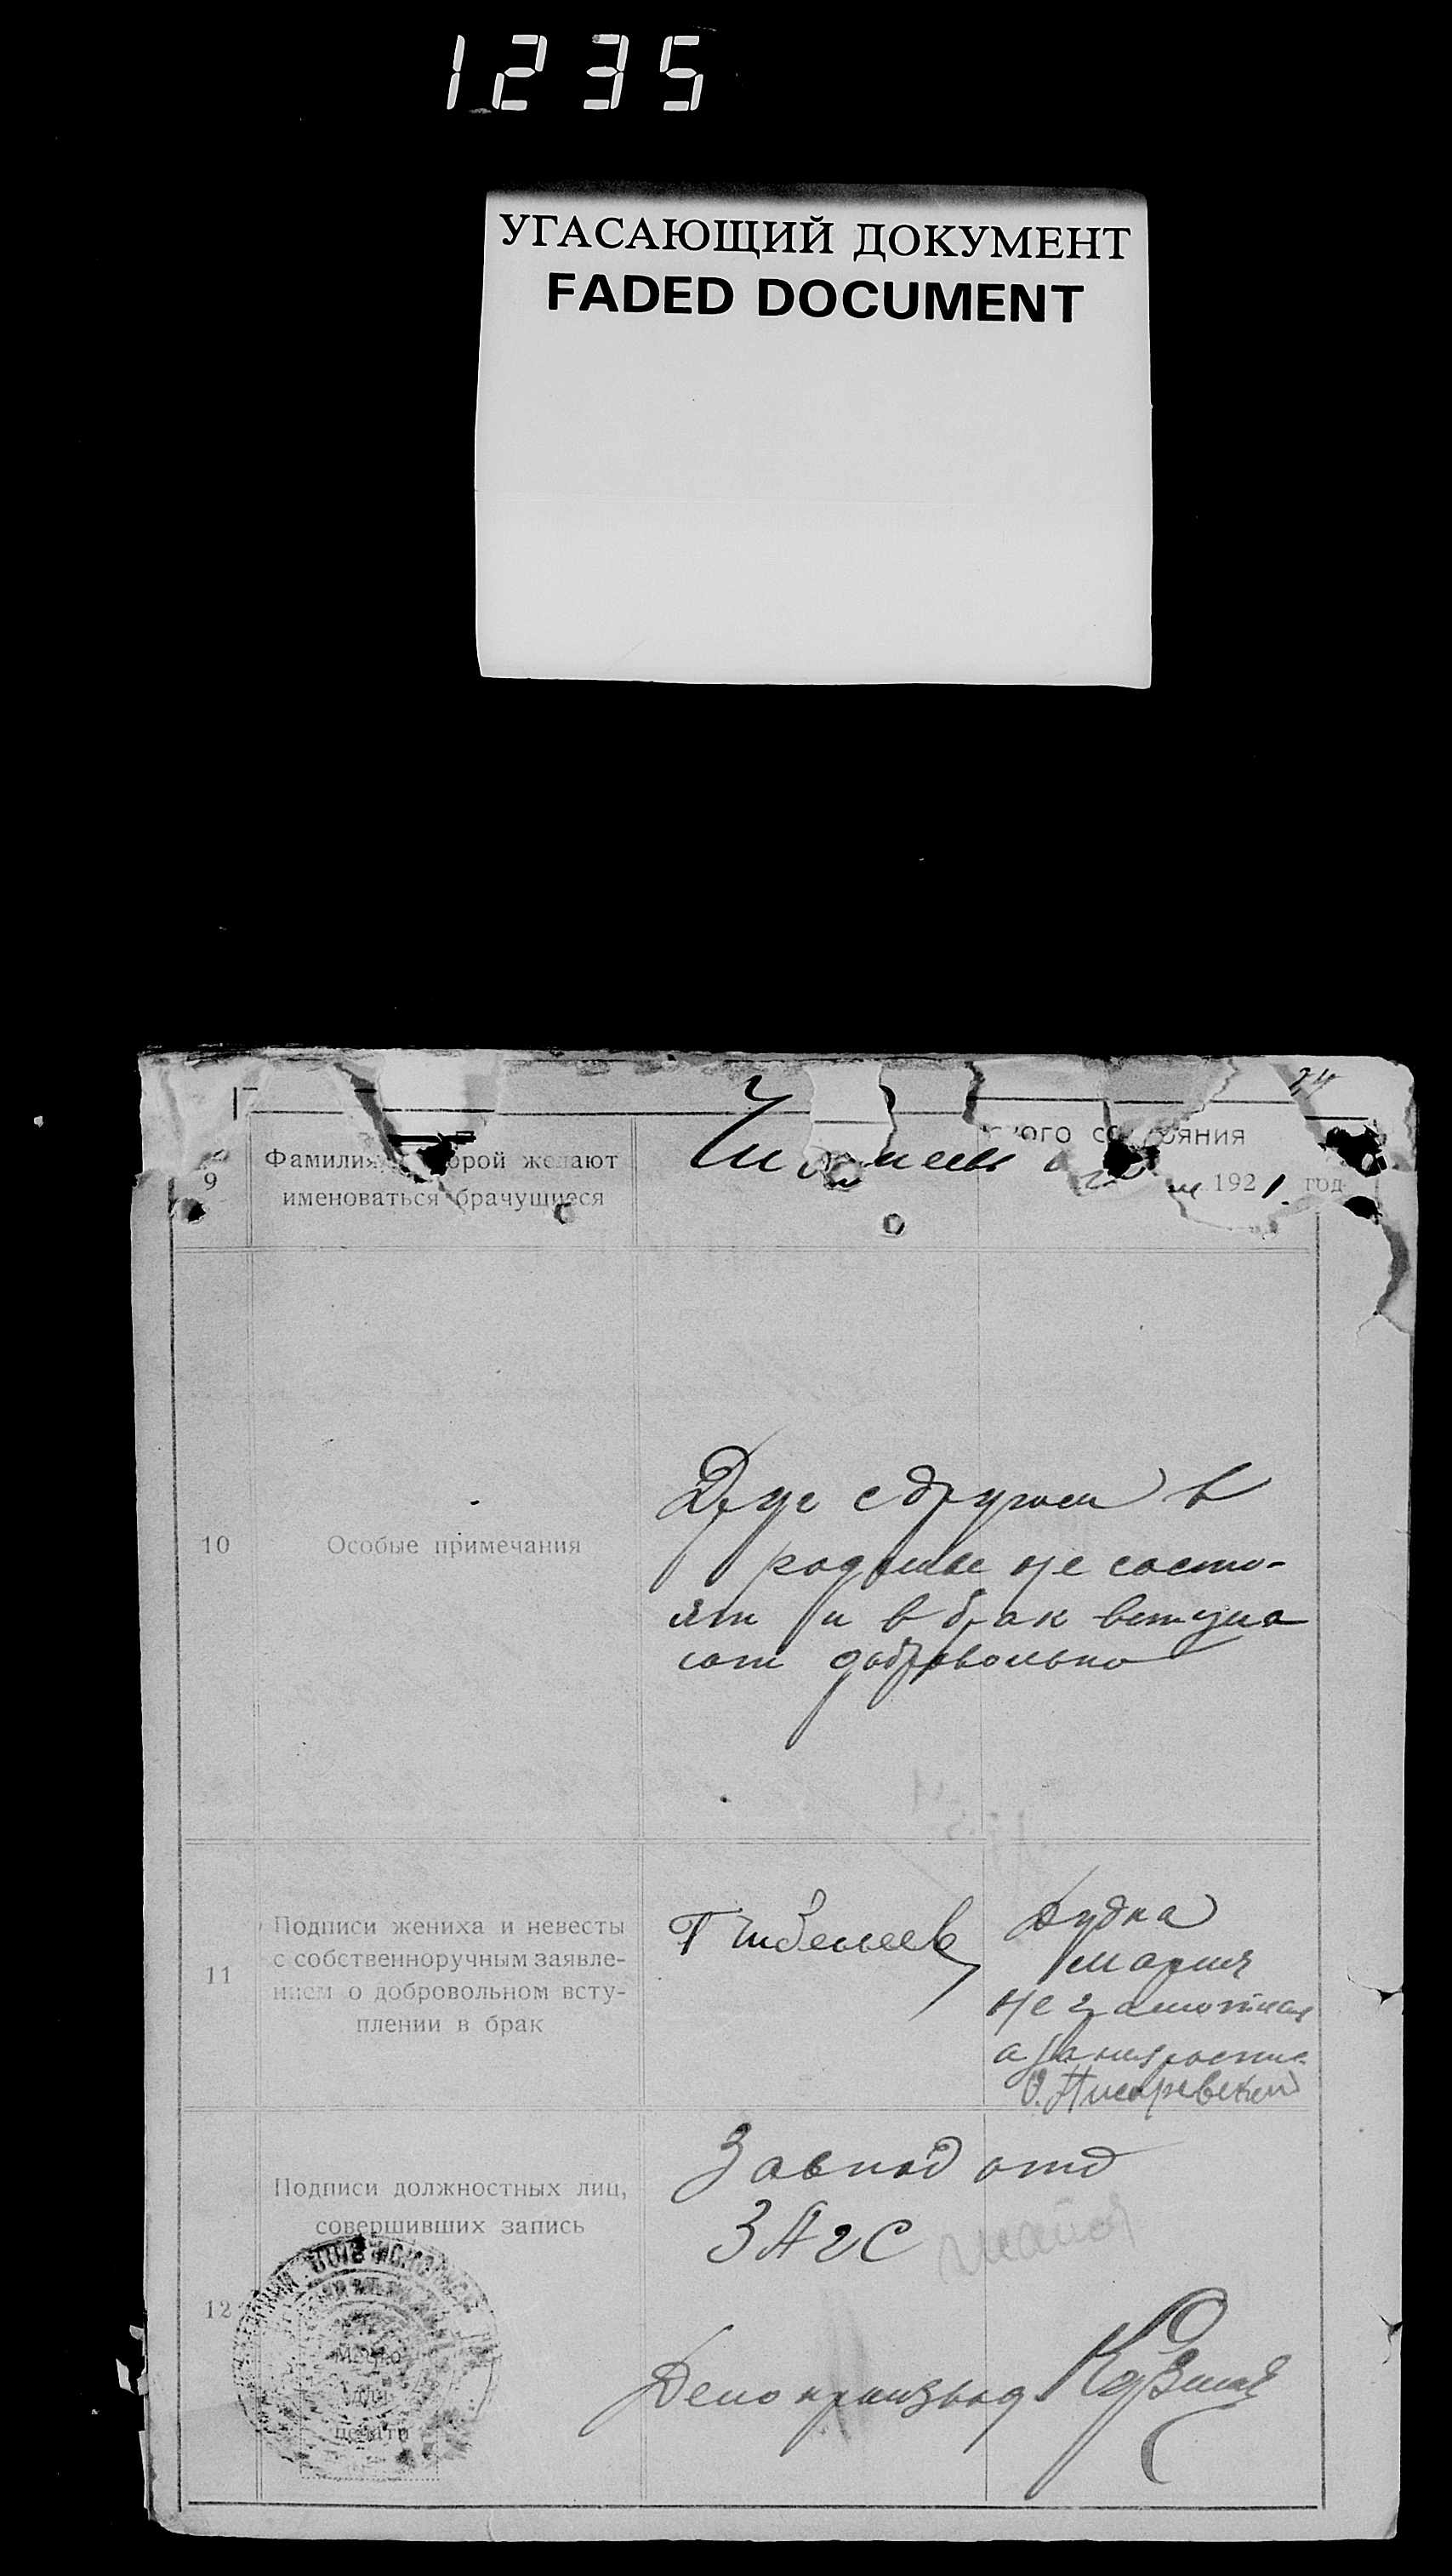 1235
УГАСАЮЩИЙ ДОКУМЕНТ
FADED DOCUMENT
24
ого со ояния
192 1. год
9
Фамилия, орой желают
именоваться брачущиеся
10
Особые примечания
Друг с другом в
родстве не состо-
ят и в брак вступа
ют добровольно
11
Подписи жениха и невесты
с собственноручным заявле-
нием о добровольном всту-
плении в брак
Дудка
Мария
не грамотная
а за нея роспис.
О. Писаревский
12
Подписи должностных лиц,
совершивших запись
Место
для
печати
Зав под отд
ЗАГС
Делопроизвод